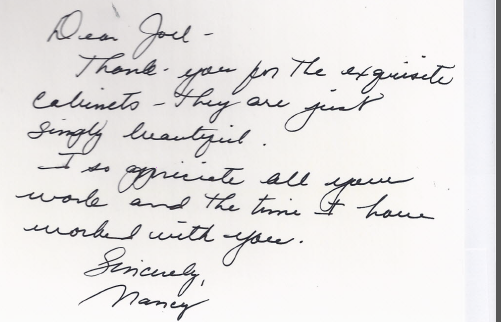 Dear Joel -
Thank you for the exquisite
cabinets - They are just
simply beautiful.
I so appriciate all your
work and the time I have
worked with you.
Sincerely,
Nancy